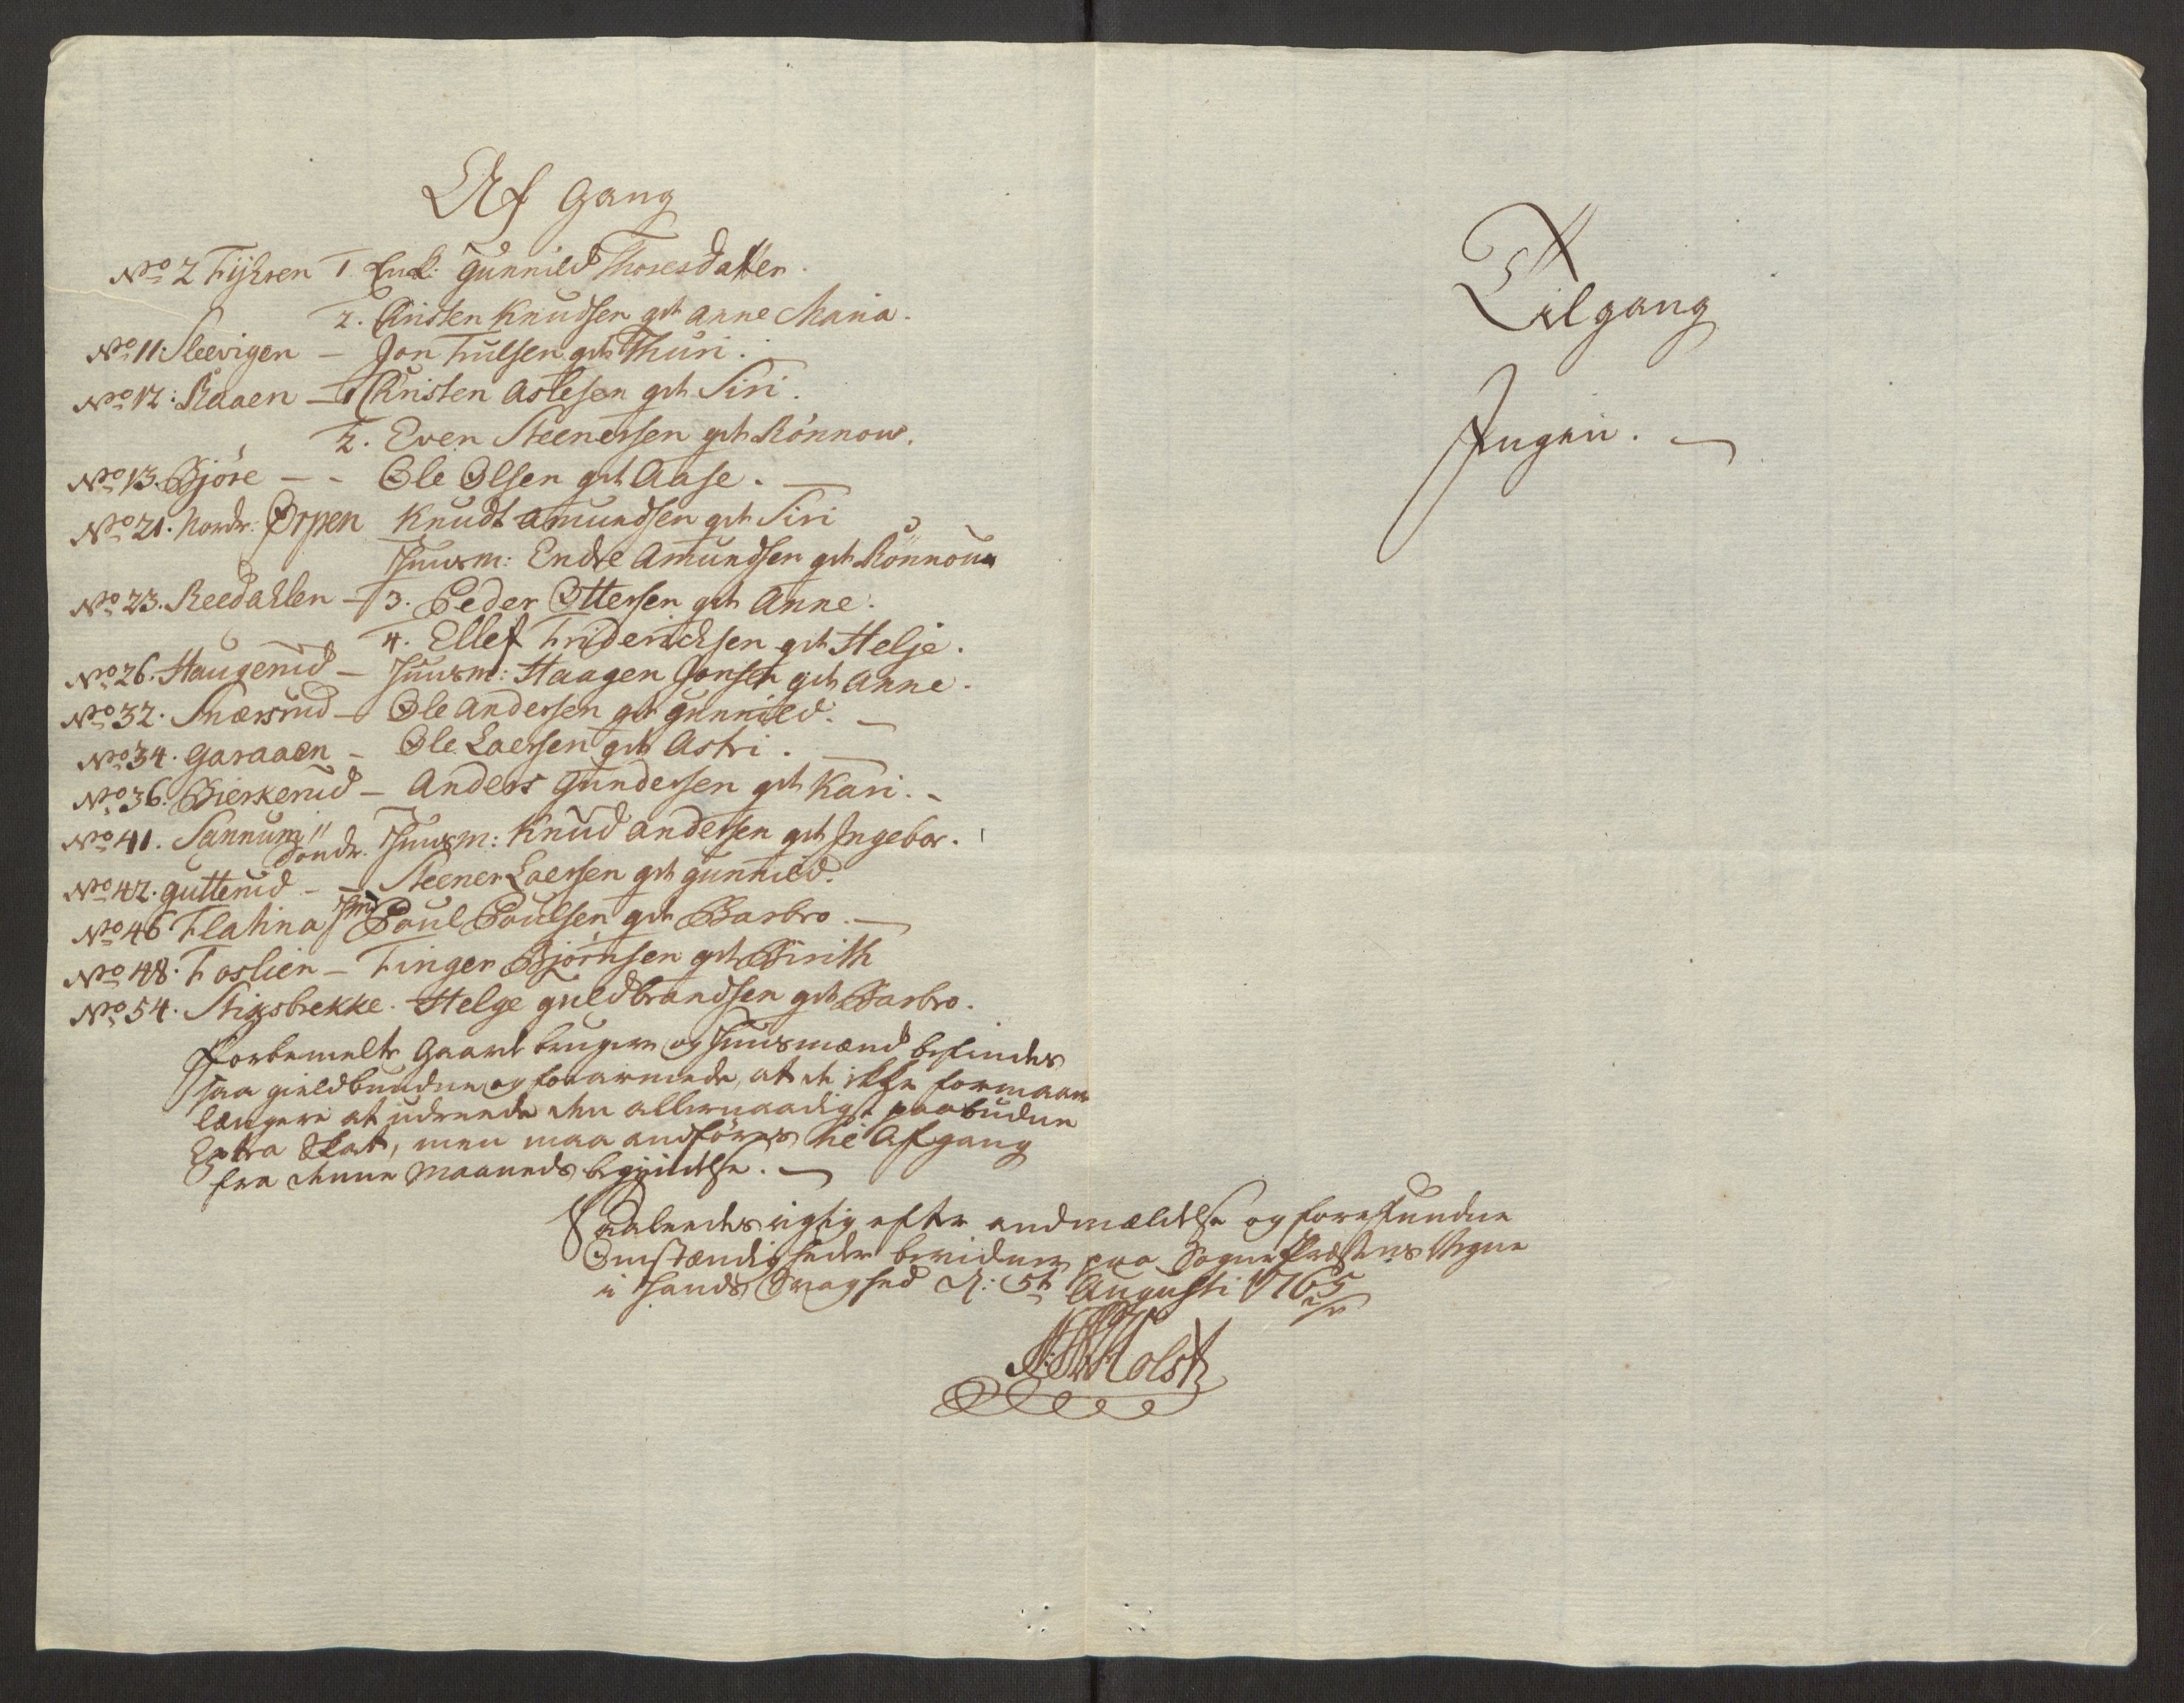 Af Gang
No 2 Fÿhren 1. Enk: Gunnild Thoresdatter.
2. Christen Knudsen gvt Anne Maria.
No 11: Sleevigen – Jon Fulsen gvt Thuri.
No 12: Raaen – 1 Christen Aslesen gvt Siri.
2. Even Steenersen gvt Rönnow.
No 13. Björe – – Ole Olsen gvt Aase. –
No 21. Nordr: Ørpen Knudt Amundsen gvt Siri
Huusm: Endre Amundsen gvt Rönnou
No 23. Reedahlen – 3. Peder Ottersen gvt Anne.
4. Ellef Friderichsen gvt Helje.
No 26. Haugerud – Huusm: Haagen Jonsen gvt Anne.
No 32. Snærsrud – Ole Andersen gvt Gunnild. –
No 34. Garaaen – Ole Laersen gvt Astri. –
No 36. Bierkerud – Anders Gundersen gvt Kari. –
No 41. Sannum söndr. Huusm: Knud Andersen gvt Ingebor.
No 42. Gutterud – – Steener Laersen gvt Gunnild.
No 46 Flatina Hmd Poul Poulsen gvt Barbro. –
No 48. Foslien – Finger Björnsen gvt Birith
No 54. Stixsbrekke. Helge Guldbrandsen gvt Barbro.
Forbemelte Gaard brugere og Huusmænd befindes
saa gieldbundne og forarmede, at de ikke formaar
længere at udreede den allernaadigst paabudne
Extra Skat, men maa andföres til Afgang
fra denne Maaneds begÿndelse. –
Saaledes rigtig efter andmældelse og forefundne
Omstændigheder bevidner paa Sogne Præstens Vegne
i Hands Svaghed d: 5te Augusti 1765
Holst
Tilgang
Ingen. –